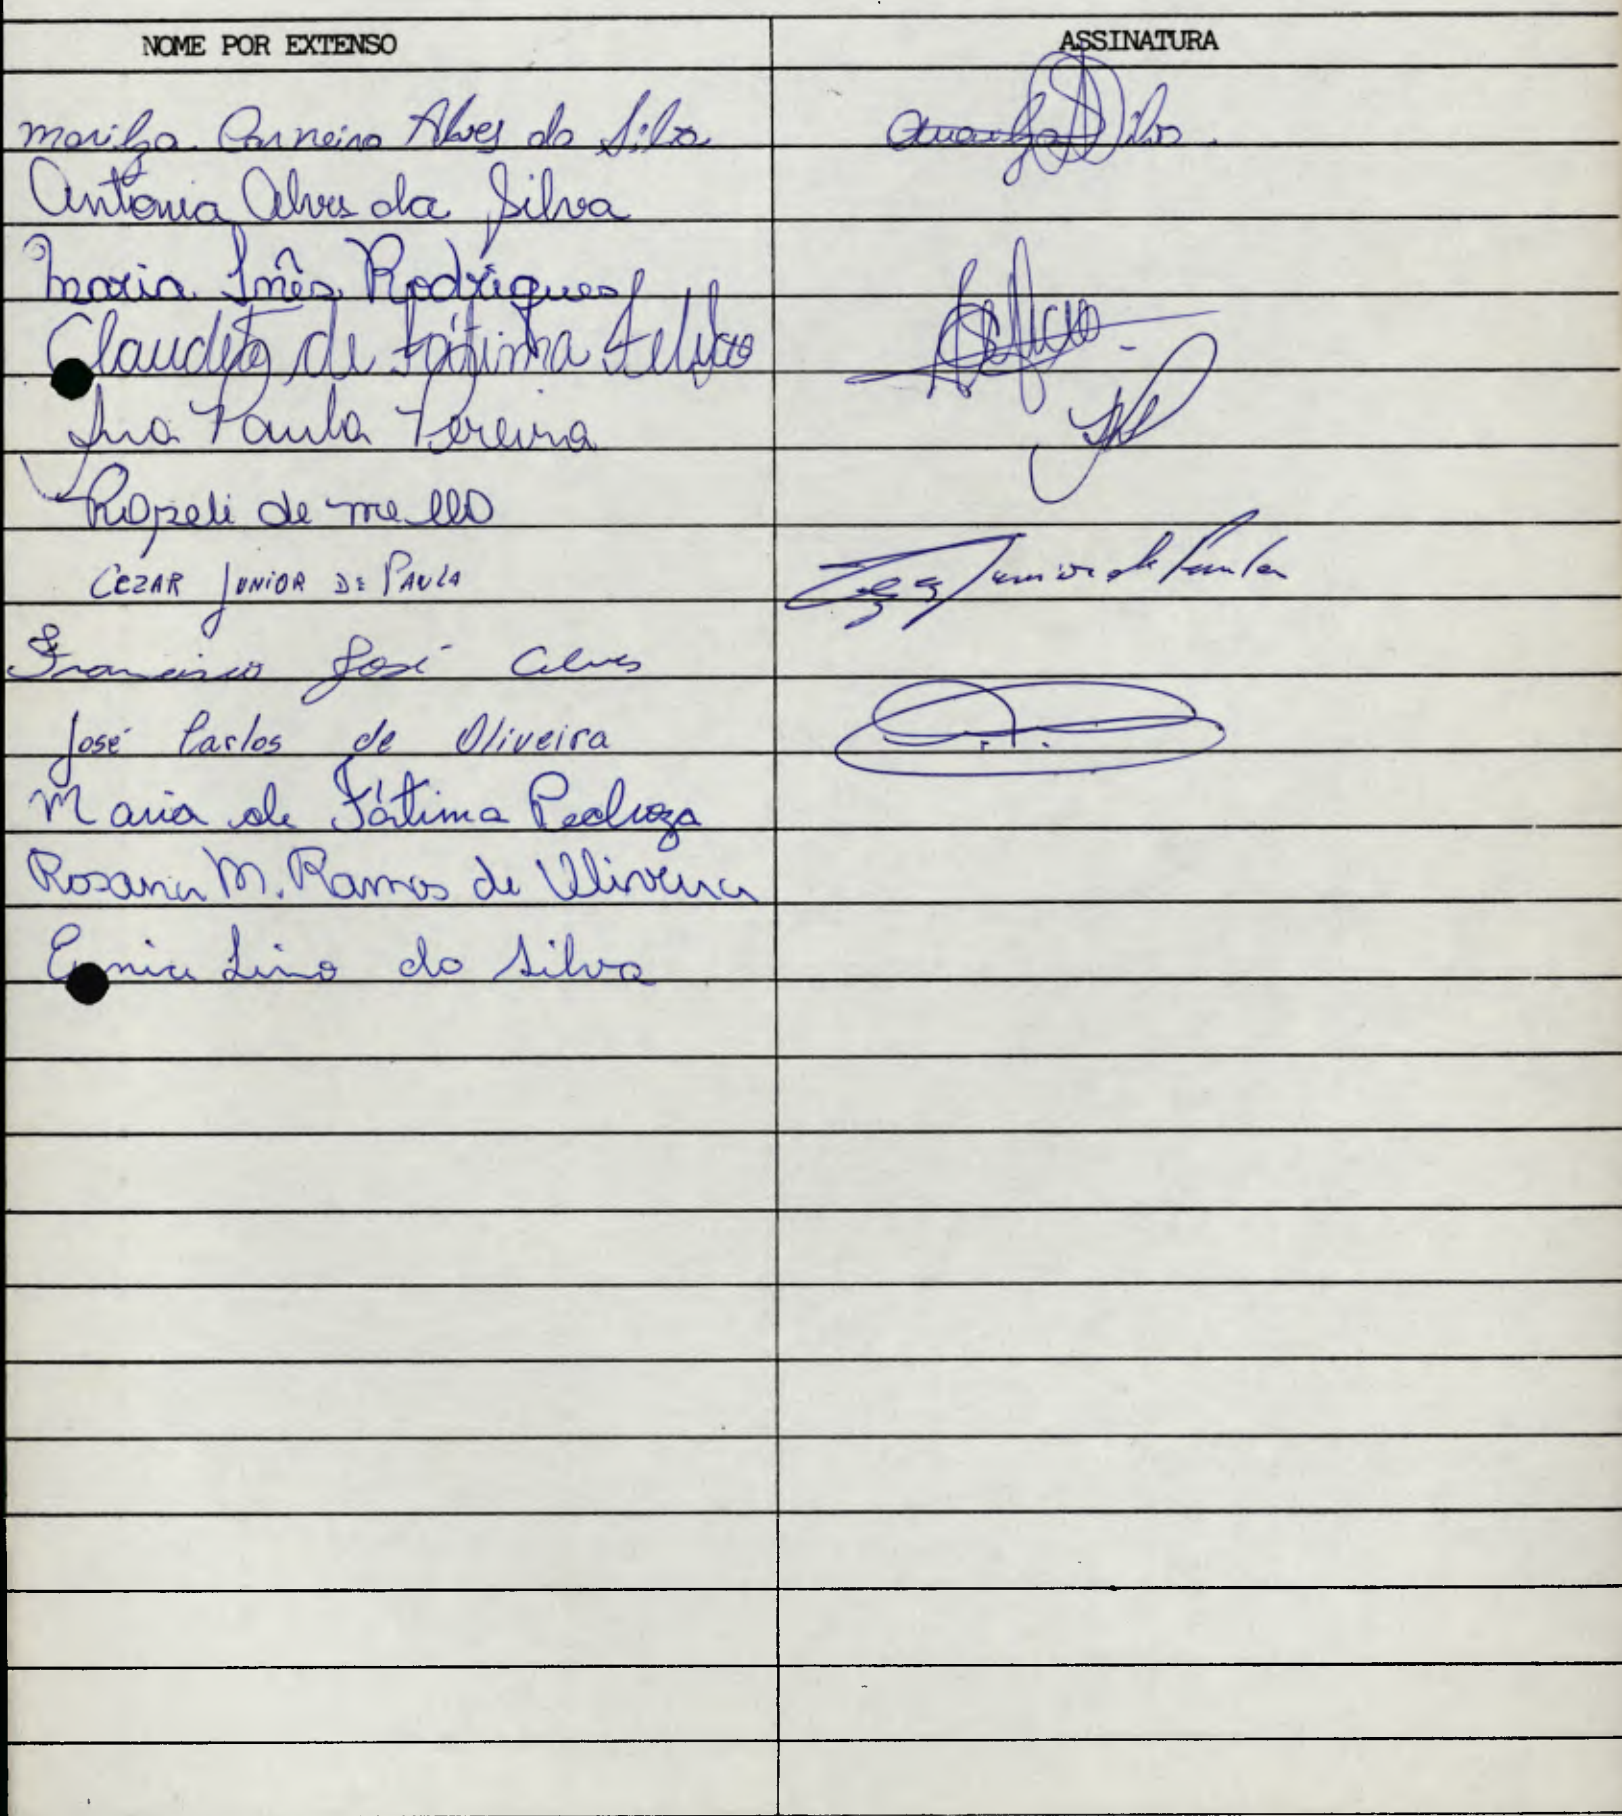 NOME POR EXTENSO ASSINATURA
Marilza Carneiro Alves da Silva
Antonia Alves da Silva
Maria Inês Rodrigues
Claudete de Fátima Felício
Ana Paula Pereira
Roseli de mello
CEZAR JUNIOR DE PAULA Cezar Junior de Paula
Francisco José Alves
José Carlos de Oliveira
Maria de Fátima Pedroza
Rosana M. Ramos de Oliveira
Eunice Lino da Silva